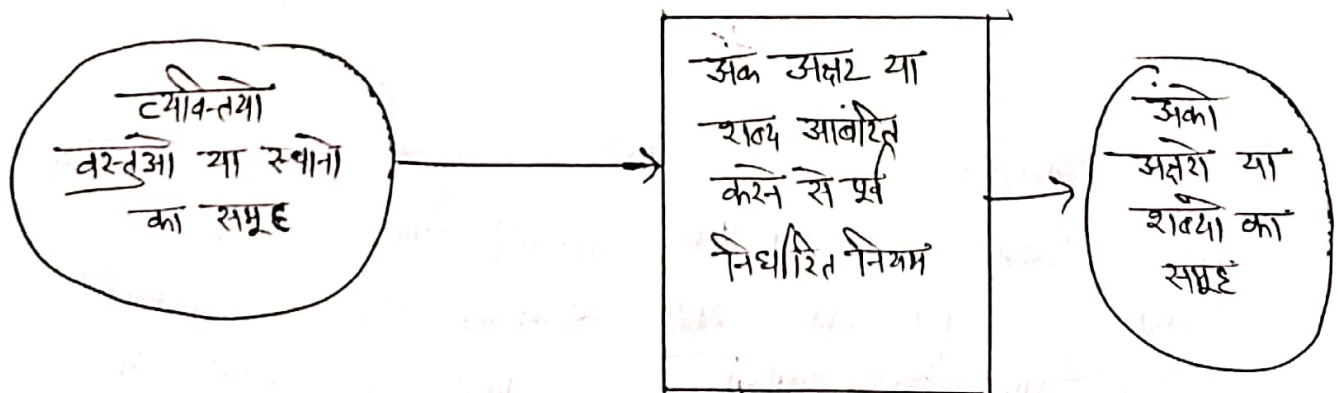 व्यक्तियो
वस्तुओ या स्थानो
का समूह
अंक अक्षर या
शब्द आबंटित
करने से पूर्व
निर्धारित नियम
अंको
अक्षरो या
शब्दो का
समूह